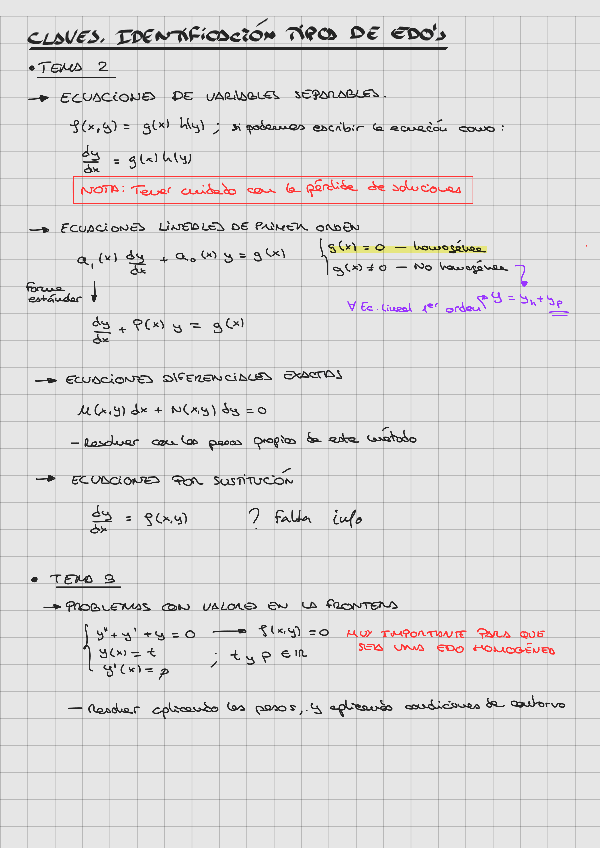 CLAVES. IDENTIFICACIÓN TIPOS DE EDO's
• TEMA 2
→ ECUACIONES DE VARIABLES SEPARABLES.
f(x,y) = g(x) h(y) ; si podemos escribir la ecuación como:
dy/dx = g(x) h(y)
NOTA: Tener cuidado con la pérdida de soluciones
→ ECUACIONES LINEALES DE PRIMER ORDEN
a₁(x) dy/dx + a₀(x) y = g(x) { g(x) = 0 — homogénea
g(x) ≠ 0 — No homogénea
forma estándar ↓
∀ Ec. lineal 1er orden y = yh + yp
dy/dx + P(x) y = g(x)
→ ECUACIONES DIFERENCIALES EXACTAS
M(x,y) dx + N(x,y) dy = 0
– Resolver con los pasos propios de este método
→ ECUACIONES POR SUSTITUCIÓN
dy/dx = f(x,y) ? Faltan info
• TEMA 3
→ PROBLEMAS CON VALORES EN LA FRONTERA
{ y'' + y' + y = 0 → f(x,y) = 0 MUY IMPORTANTE PARA QUE
y(x) = t ; t y p ∈ ℝ SEA UNA EDO HOMOGÉNEA
y'(x) = p
– Resolver aplicando los pasos, y aplicando condiciones de contorno